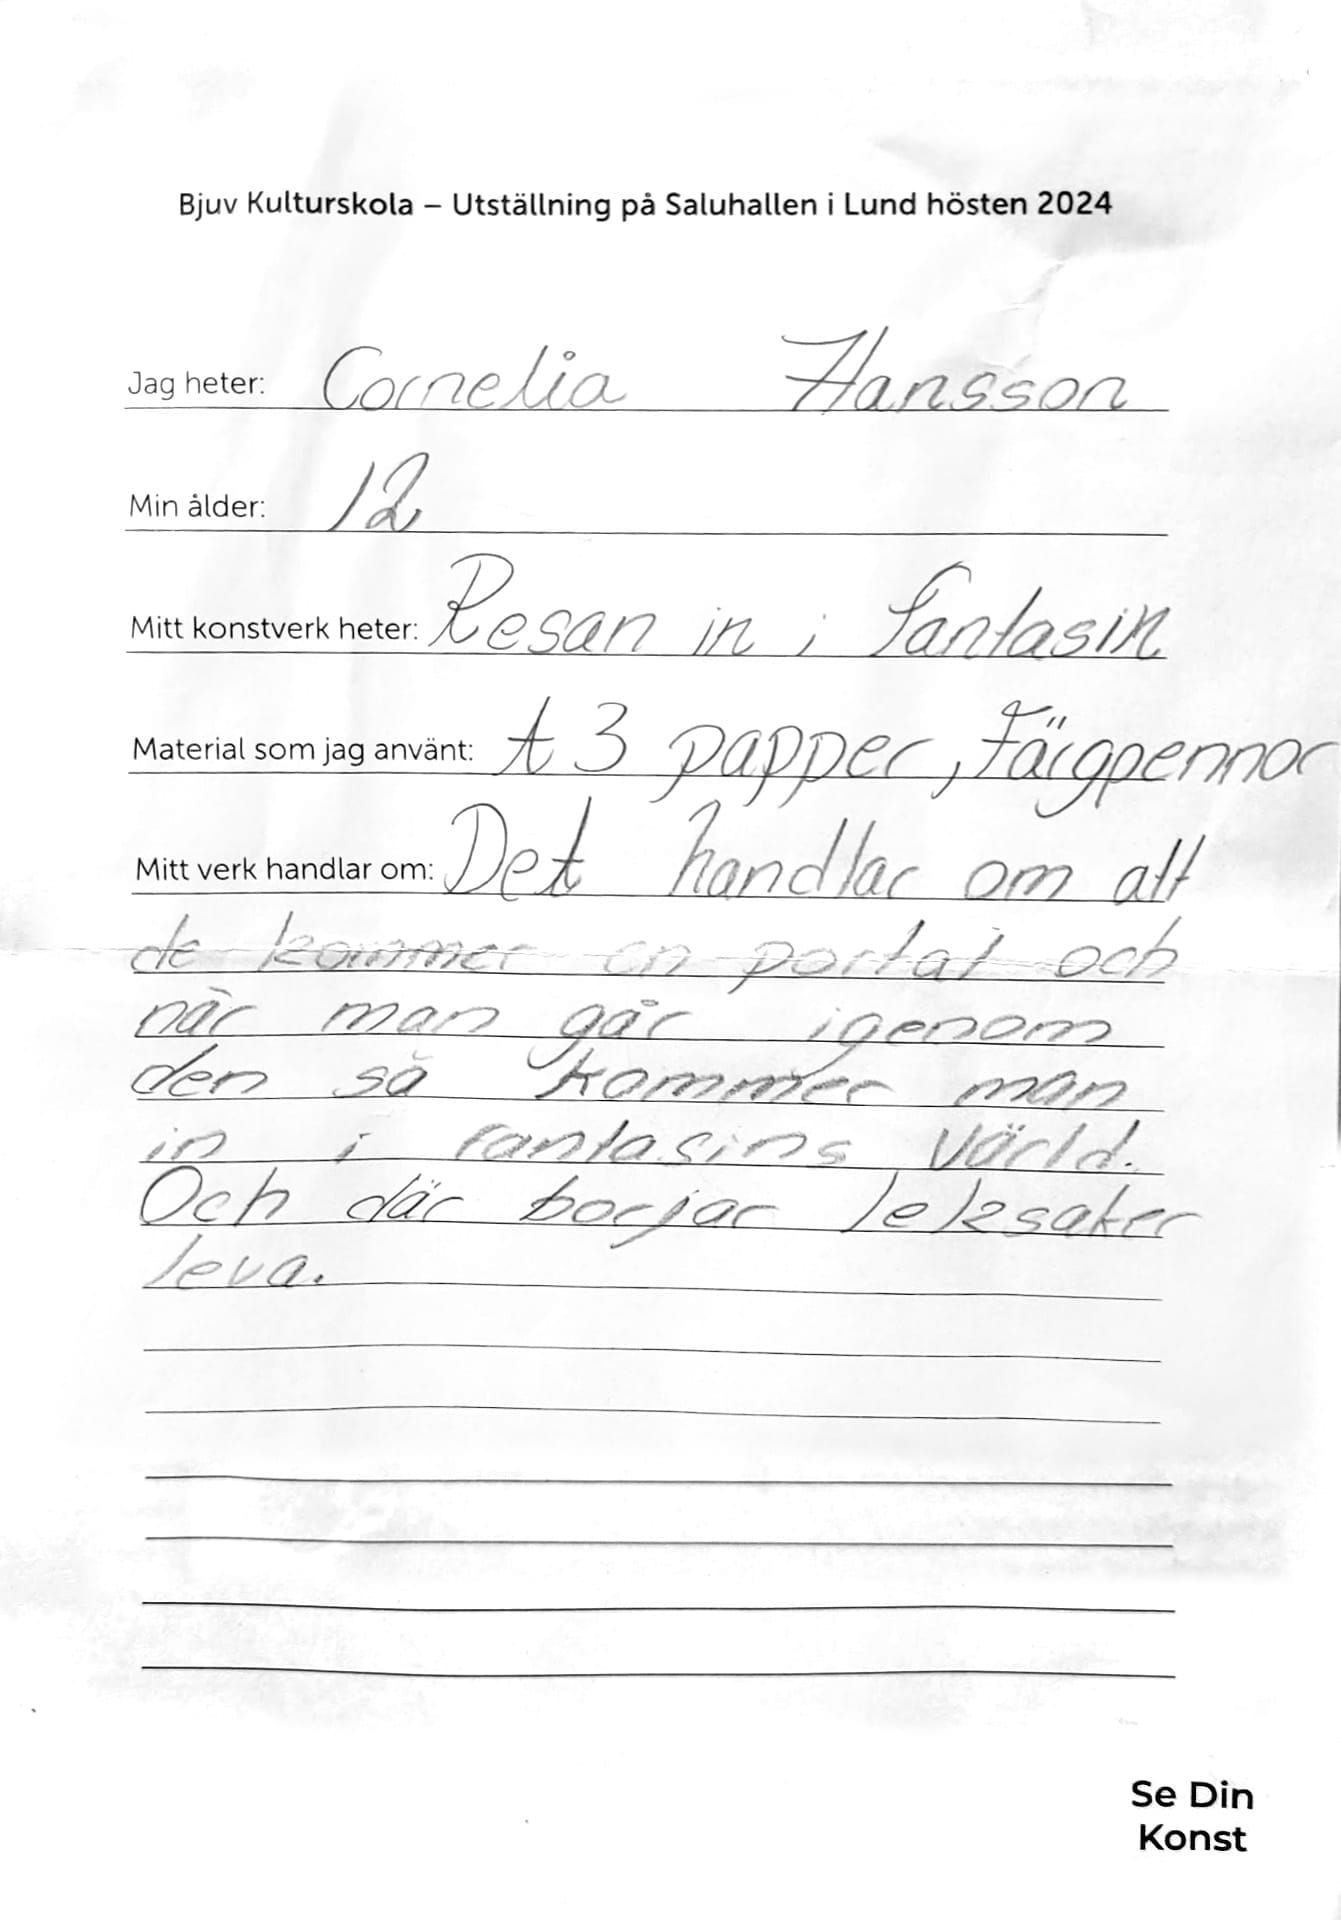 Bjuv Kulturskola – Utställning på Saluhallen i Lund hösten 2024
Jag heter: Cornelia Hansson
Min ålder: 12
Mitt konstverk heter: Resan in i fantasin
Material som jag använt: A3 papper, Färgpennor
Mitt verk handlar om: Det handlar om att
de kommer en portal och
når man går igenom
den så kommer man
in i fantasins värld.
Och där borjar leksaker
leva.
Se Din
Konst